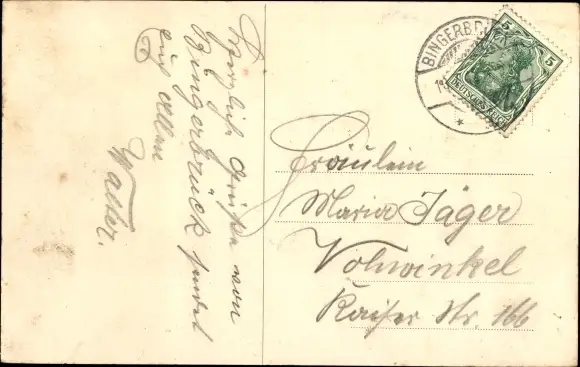 Herzliche Grüße von
Bingerbrück sendet
euch allen
Walter.
BINGERBRÜ
5
5
DEUTSCHES REICH
Fräulein
Maria Jäger
Vohwinkel
Kaiser Str. 166